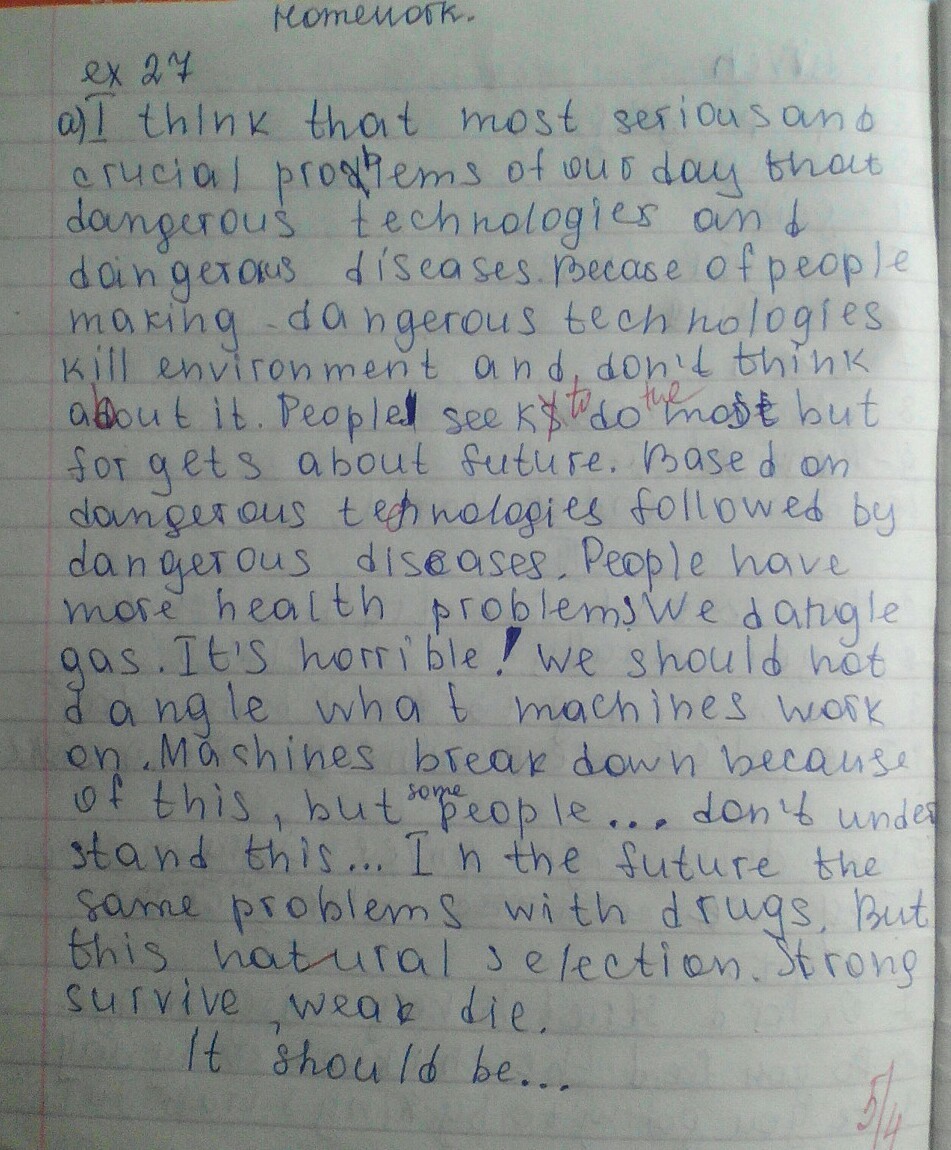 Homework.
ex 27
a) I think that most serious and
crucial problems of our day that
dangerous technologies and
dangerous diseases. Becase of people
making dangerous technologies
kill environment and, don't think
about it. People seek to do the most but
forgets about future. Based on
dangerous technologies followed by
dangerous diseases. People have
more health problems. We dangle
gas. It's horrible! We should not
dangle what machines work
on. Machines break down because
of this, but some people... don't under
stand this... In the future the
same problems with drugs. But
this natural selection. Strong
survive, weak die.
It should be...
5/4